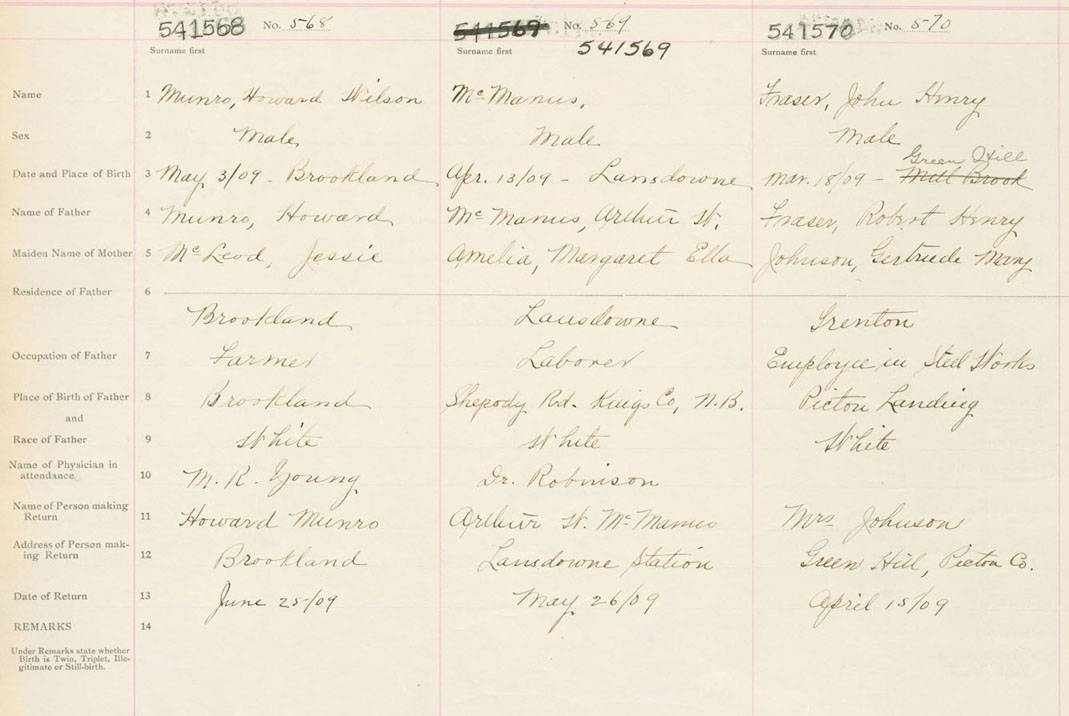 541568 No. 568
541569 No. 569
541569
541570 No. 570
Surname first Surname first Surname first
Name 1 Munro, Howard Wilson Mc Manus, Fraser, John Henry
Sex 2 Male Male Male
Green Hill
Date and Place of Birth 3 May 3/09 - Brookland Apr. 13/09 - Lansdowne Mar. 18/09 - Mill Brook
Name of Father 4 Munro, Howard Mc Manus, Arthur W. Fraser, Robert Henry
Maiden Name of Mother 5 McLeod, Jessie Amelia, Margaret Ella Johnson, Gertrude Mary
Residence of Father 6
Brookland Lansdowne Trenton
Occupation of Father 7 Farmer Laborer Employee in Steel Works
Place of Birth of Father 8 Brookland Shepody Rd. Kings Co, N.B. Pictou Landing
and
Race of Father 9 White White White
Name of Physician in
attendance 10 M. R. Young Dr. Robinson
Name of Person making
Return 11 Howard Munro Arthur W. McManus Mrs Johnson
Address of Person mak-
ing Return 12 Brookland Lansdowne Station Green Hill, Pictou Co.
Date of Return 13 June 25/09 May 26/09 April 15/09
REMARKS 14
Under Remarks state whether
Birth is Twin, Triplet, Ille-
gitimate or Still-birth.